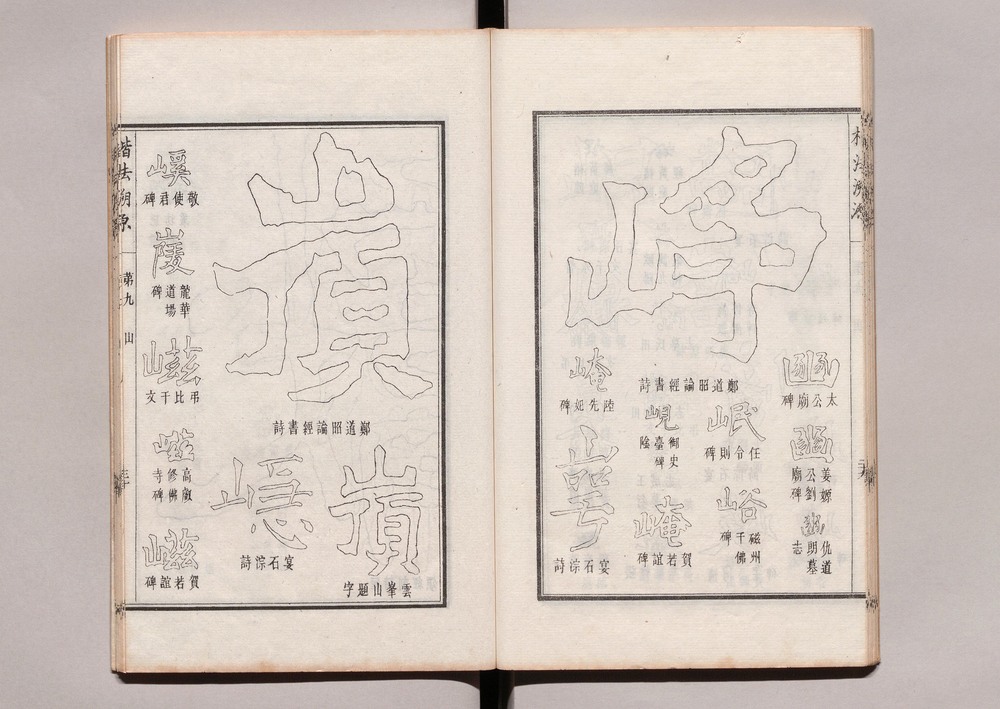 太公廟碑
姜嫄
公劉
廟碑
仇道
朗墓
志
崢
鄭道昭論經書詩
岷
任令則碑
峪
磁州
千佛
碑
峴
御史
臺碑
陰
崦
賀若誼碑
陸先妃碑
宴石淙詩
嵿
鄭道昭論經書詩
嵿
雲峯山題字
宴石淙詩
嵠
敬使君碑
龍華
道場
碑
嵫
弔比干文
嵫
高叡
修佛
寺碑
嵫
賀若誼碑
楷法溯源
第九
山